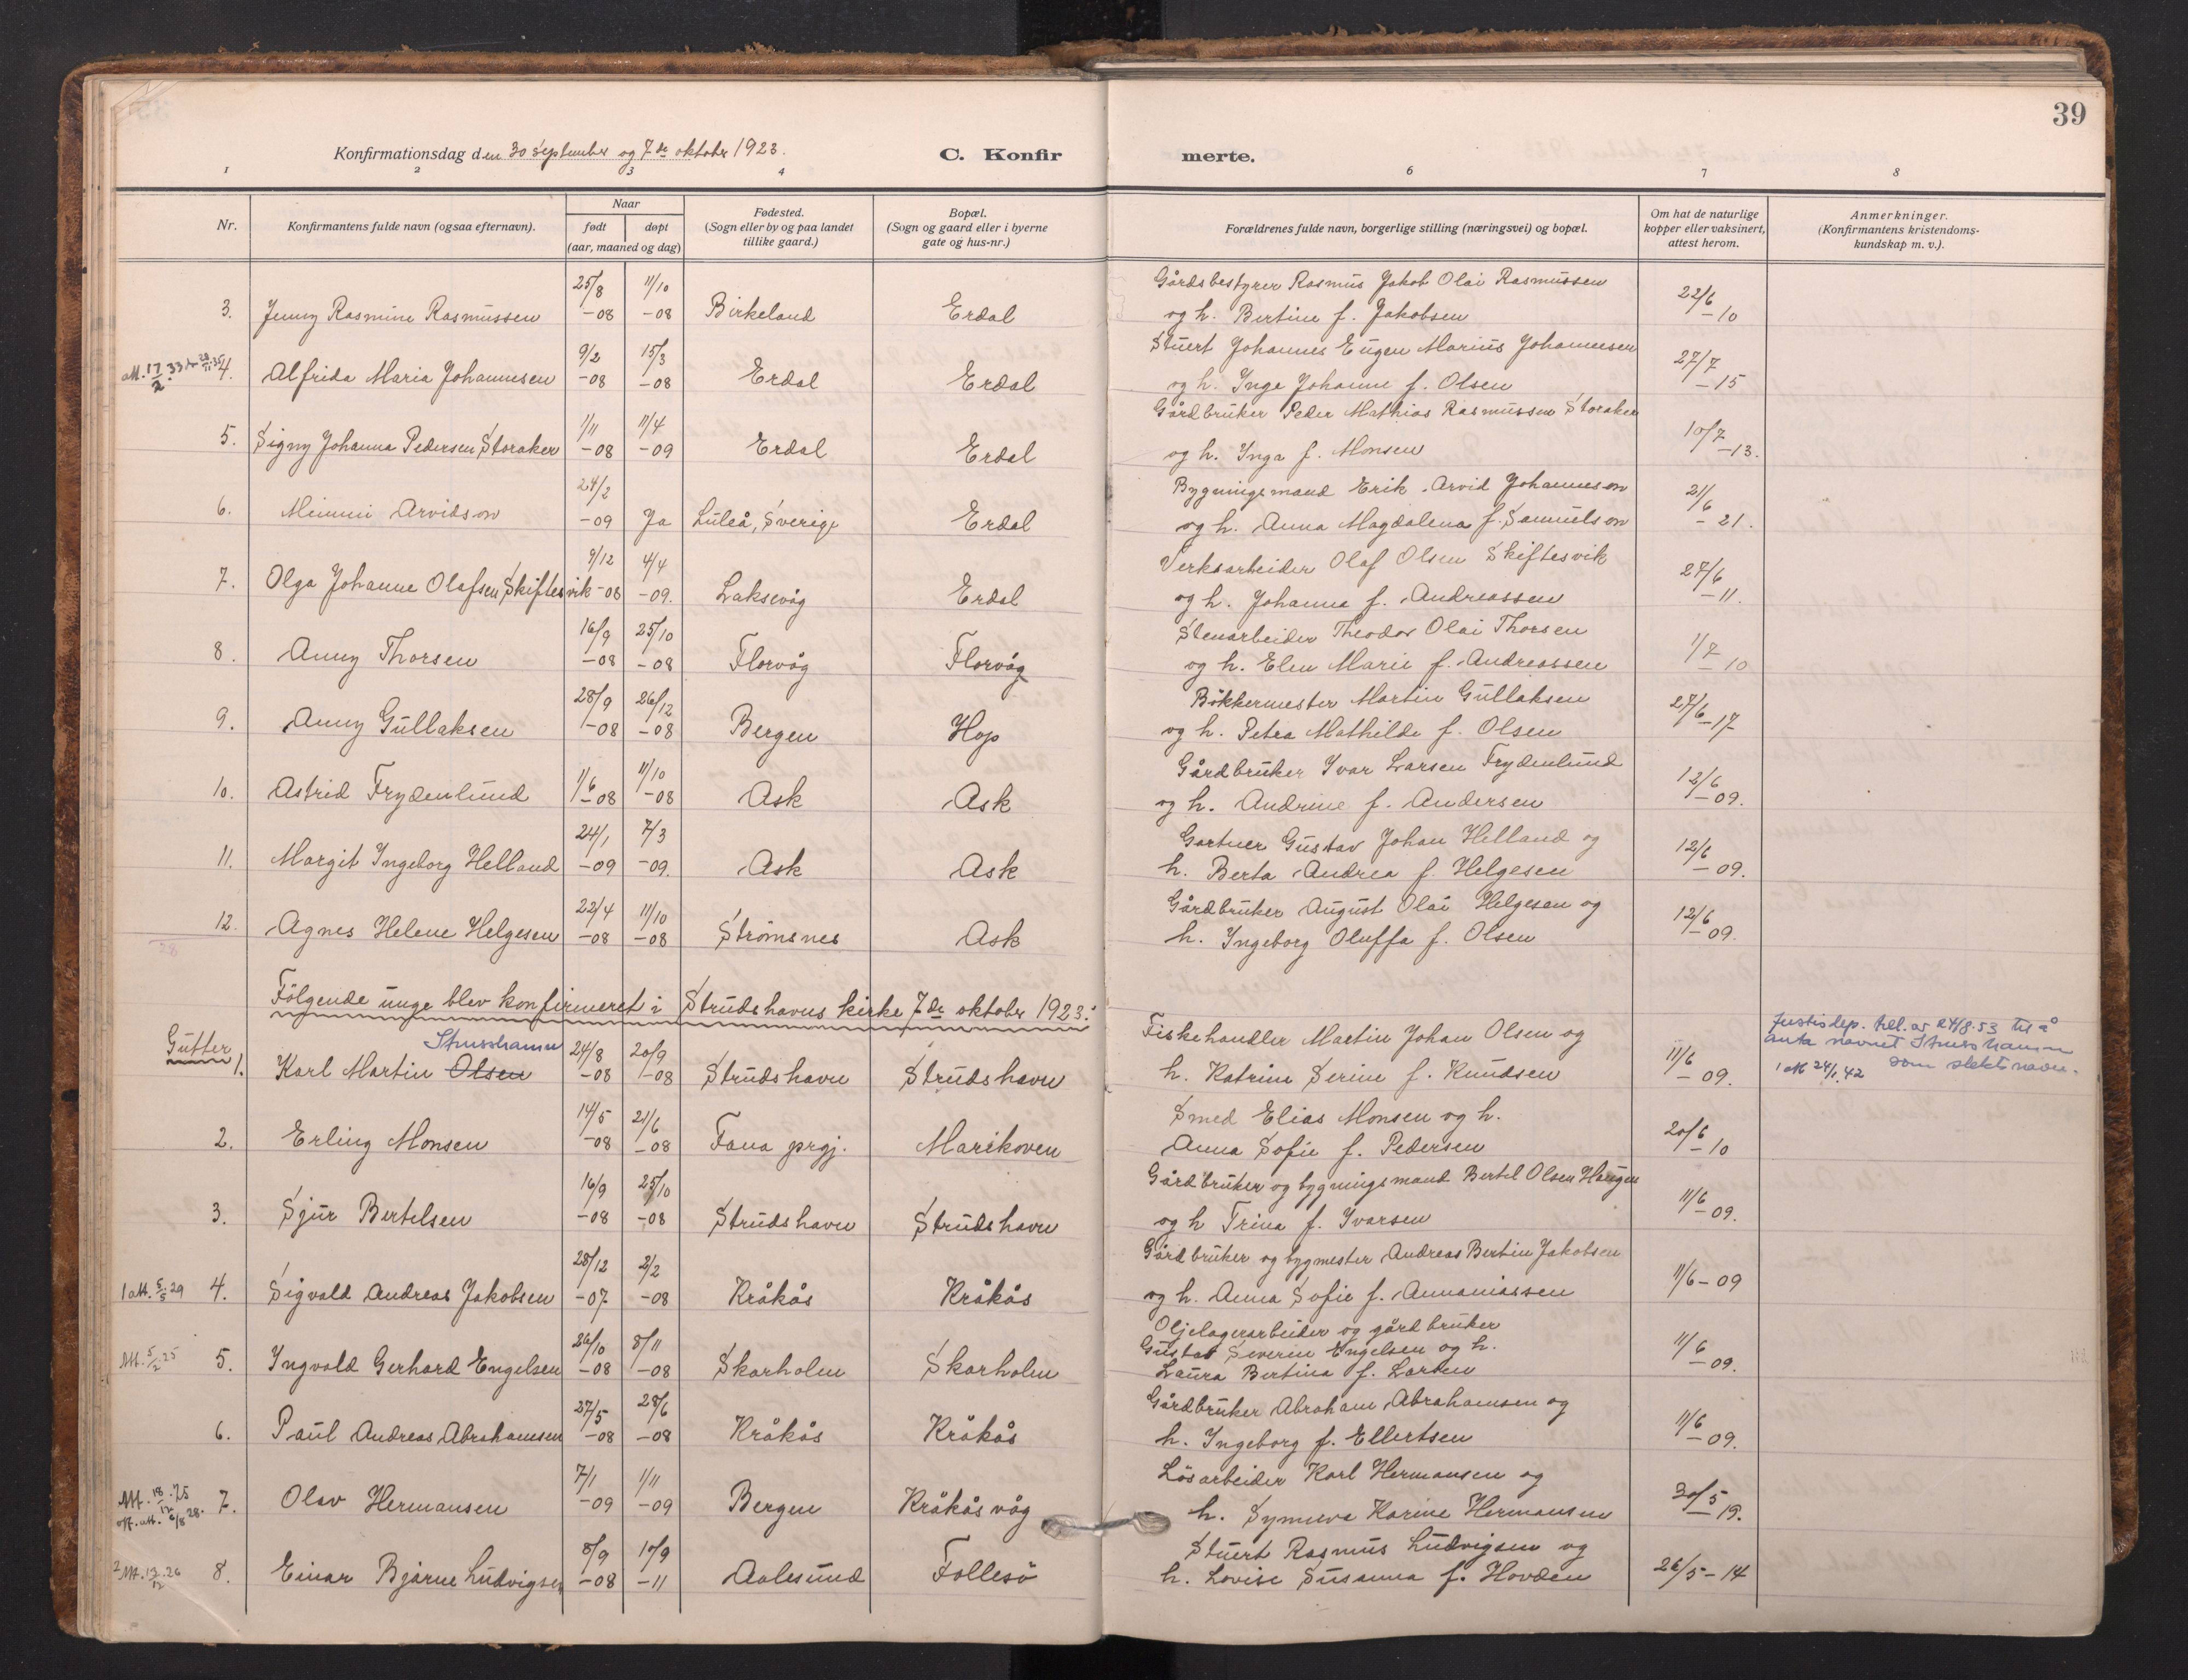 39
Konfirmationsdag den 30 September og 7de oktober 1923.
C. Konfirmerte.
1 2 3 4 6 7 8
Nr.
Konfirmantens fulde navn (ogsaa efternavn).
Naar
født døpt
(aar, maaned og dag)
Fødested.
(Sogn eller by og paa landet
tillike gaard.)
Bopæl.
(Sogn og gaard eller i byerne
gate og hus-nr.)
Forældrenes fulde navn, borgerlige stilling (næringsvei) og bopæl.
Om hat de naturlige
kopper eller vaksinert,
attest herom.
Anmerkninger.
(Konfirmantens kristendoms-
kundskap m. v.).
3. Jenny Rasmine Rasmussen 25/8 -08 11/10 -08 Birkeland Erdal
Gårdsbestyrer Rasmus Jakob Olai Rasmussen
og h. Bertine f. Jakobsen 22/6 -10
att. 17/2 33 28/11 35 4. Alfrida Maria Johannesen 9/2 -08 15/3 -08 Erdal Erdal
Stuert Johannes Eugen Marius Johannesen
og h. Inga Johanne f. Olsen 27/7 -15
5. Signy Johanna Pedersen Storaker 1/11 -08 11/4 -09 Erdal Erdal
Gårdbruker Peder Mathias Rasmussen Storaker
og h. Inga f. Monsen 10/7 -13.
6. Mimmi Arvidson 24/2 -09 Ja Luleå, Sverige Erdal
Bygningsmand Erik Arvid Johanneson
og h. Anna Magdalena f. Samuelson 21/6 -21.
7. Olga Johanne Olafsen Skiftesvik 9/12 -08 4/4 -09. Laksevåg Erdal
Verksarbeider Olaf Olsen Skiftesvik
og h. Johanna f. Andreassen 27/6 -11.
8. Anny Thorsen 16/9 -08 25/10 -08 Florvåg Florvåg
Stenarbeider Theodor Olai Thorsen
og h. Elen Marie f. Andreassen 1/7 -10
9. Anny Gullaksen 28/9 -08 26/12 -08 Bergen Hop
Bökkermester Martin Gullaksen
og h. Petra Mathilde f. Olsen 27/6 -17
10. Astrid Frydenlund 1/6 -08 11/10 -08 Ask Ask
Gårdbruker Ivar Larsen Frydenlund
og h. Andrine f. Andersen 12/6 -09.
11. Margit Ingeborg Helland 24/1 -09 7/3 -09. Ask Ask
Gartner Gustav Johan Helland og
h. Berta Andrea f. Helgesen 12/6 -09.
12. Agnes Helene Helgesen 22/4 -08 11/10 -08 Strömsnes Ask
Gårdbruker August Olai Helgesen og
h. Ingeborg Oluffa f. Olsen 12/6 -09.
28
Fölgende unge blev konfirmeret i Strudshavns kirke 7de oktober 1923:
Gutter
1. Karl Martin Olsen Strusshamn 24/8 -08 20/9 -08 Strudshavn Strudshavn
Fiskehandler Martin Johan Olsen og
h. Katrina Serine f. Knudsen 11/6 -09.
Justisdep. till. av 24/8.53 til å
anta navnet Strusshamn
1 att 24/1.42 som slektsnavn.
2. Erling Monsen 14/5 -08 21/6 -08 Fana prgj. Marikoven
Smed Elias Monsen og h.
Anna Sofie f. Pedersen 20/6 -10
3. Sjur Bertelsen 16/9 -08 25/10 -08 Strudshavn Strudshavn
Gårdbruker og bygningsmand Bertel Olsen Haugen
og h Trina f. Ivarsen 11/6 -09.
1 att. 5/5 29 4. Sigvald Andreas Jakobsen 28/12 -07 2/2 -08 Kråkås Kråkås
Gårdbruker og bygmester Andreas Bertin Jakobsen
og h. Anna Sofie f. Annaniassen 11/6-09
Att. 5/2 25 5. Ingvald Gerhard Engelsen 26/10 -08 8/11 -08 Skarholm Skarholm
Oljelagerarbeider og gårdbruker
Gustav Severin Engelsen og h.
Laura Bertina f. Larsen 11/6 -09.
6. Paul Andreas Abrahamsen 27/5 -08 28/6 -08 Kråkås Kråkås
Gårdbruker Abraham Abrahamsen og
h. Ingeborg f. Ellertsen 11/6 -09.
Att. 18/12 25 off. att. 6/8 28. 7. Olav Hermansen 7/1 -09 1/11 -09 Bergen Kråkåsvåg
Lösarbeider Karl Hermansen og
h. Synneva Karine Hermansen 30/5 -19.
2 Att. 12/12 26 8. Einar Bjarne Ludvigsen 8/9 -08 10/9 -11 Aalesund Follesö
Stuert Rasmus Ludvigsen og
h. Lovise Susanna f. Hovden 26/5-14